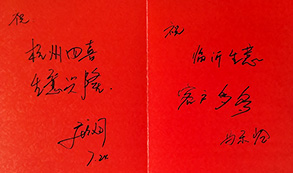 祝
杭州四喜
生意兴隆
7.22
祝
临沂生意
客户多多